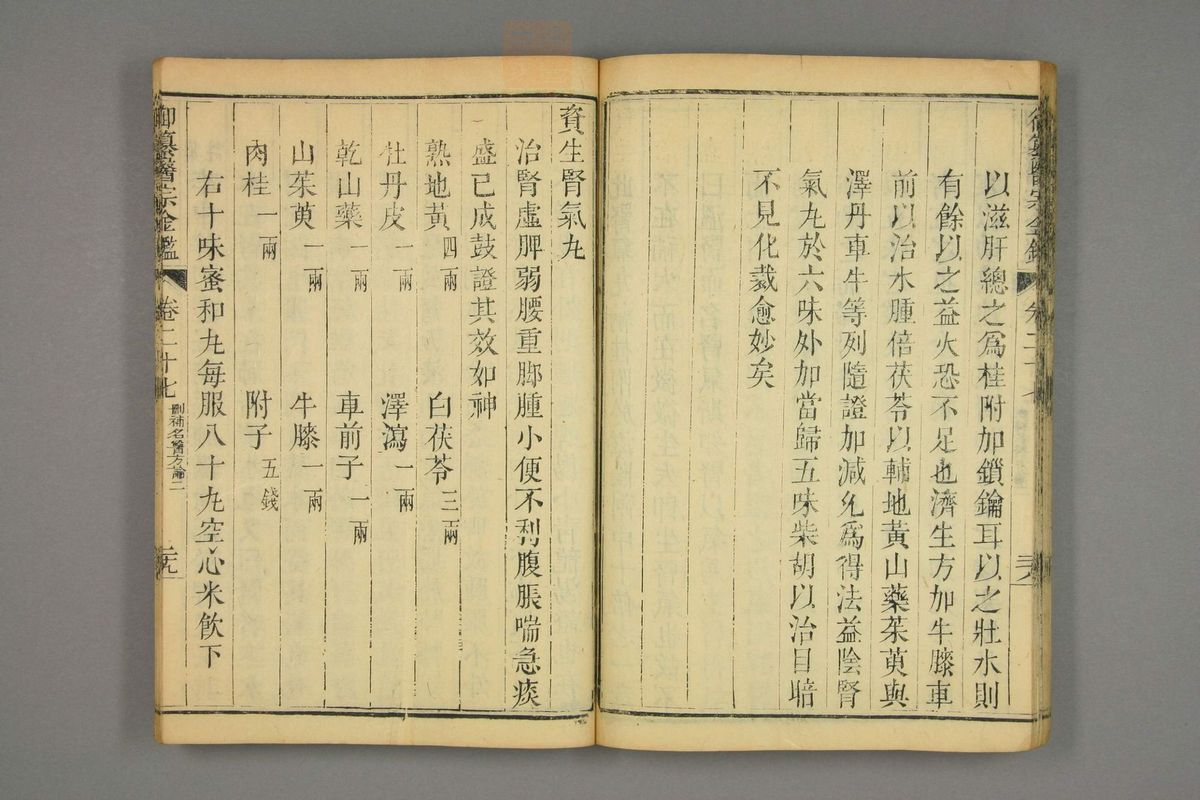 以滋肝總之爲桂附加鎖鑰耳以之壯水則
有餘以之益火恐不足也濟生方加牛膝車
前以治水腫倍茯苓以輔地黃山藥茱萸與
澤丹車牛等列隨證加減允爲得法益陰腎
氣丸於六味外加當歸五味柴胡以治目暗
不見化裁愈妙矣
資生腎氣丸
治腎虛脾弱腰重脚腫小便不利腹脹喘急痰
盛已成鼓證其效如神
熟地黃四兩 白茯苓三兩
牡丹皮一兩 澤瀉一兩
乾山藥一兩 車前子一兩
山茱萸一兩 牛膝一兩
肉桂一兩 附子五錢
右十味蜜和丸每服八十丸空心米飲下
御纂醫宗金鑑 卷二十七 刪補名醫方論二